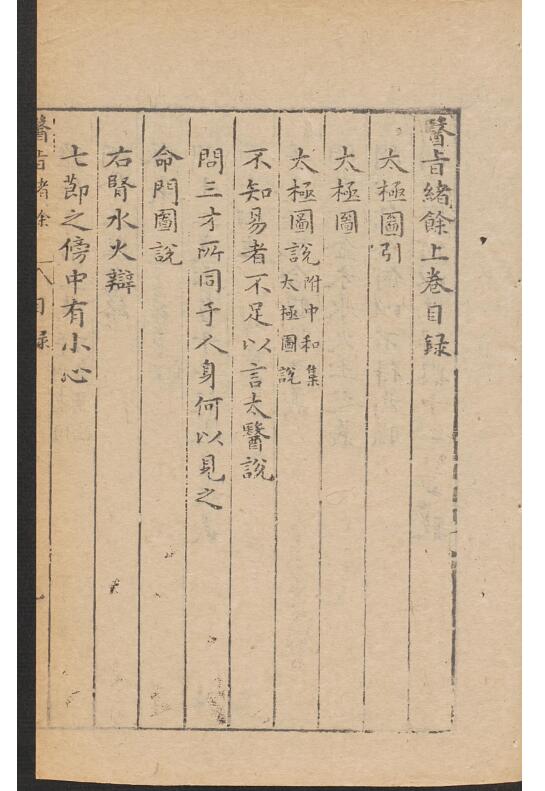 醫旨緒餘上卷目録
太極圖引
太極圖
太極圖說附中和集太極圖說
不知易者不足以言太醫說
問三才所同乎人身何以見之
命門圖說
右腎水火辯
七節之傍中有小心
醫旨緒餘 目録